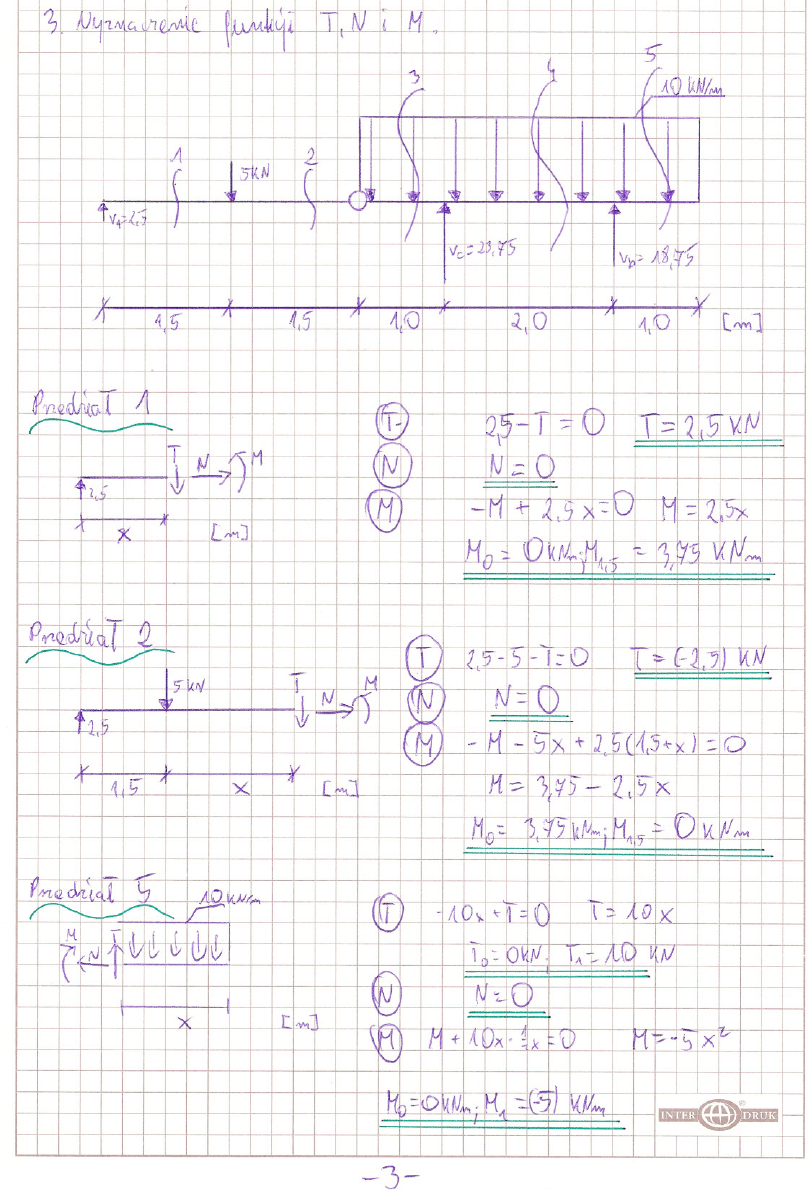 3. Wyznaczenie funkcji T, N i M.
1 2 3 4 5
10 kN/m
5 kN
V₄=2,5
Vc=23,75
VD=18,75
1,5 1,5 1,0 2,0 1,0 [m]
Przedział 1
T N M
2,5
x [m]
T 2,5-T=0 T=2,5 kN
N N=0
M -M+2,5x=0 M=2,5x
M₀=0 kNm; M₁,₅=3,75 kNm
Przedział 2
5 kN T N M
2,5
1,5 x [m]
T 2,5-5-T=0 T=(-2,5) kN
N N=0
M -M-5x+2,5(1,5+x)=0
M=3,75-2,5x
M₀=3,75 kNm; M₁,₅=0 kNm
Przedział 5
10 kN/m
M N T
x [m]
T -10x+T=0 T=10x
T₀=0 kN; T₁=10 kN
N N=0
M M+10x·½x=0 M=-5x²
M₀=0 kNm; M₁=(-5) kNm
INTER DRUK ®
-3-